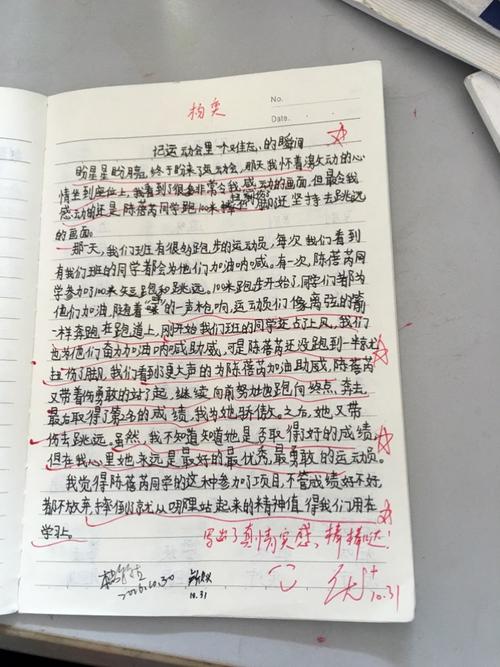 杨奕
No.
Date.
记运动会里一个难忘的瞬间
盼星星盼月亮,终于盼来了运动会,那天我怀着激动的心
情坐到座位上,我看到了很多非常令我感动的画面,但最令我
感动的还是陈蓓芮同学跑100米 脚还坚持去跳远
的画面。
那一天,我们班有很多跑步的运动员,每次我们看到
有我们班的同学都会为他们加油呐喊。有一次,陈蓓芮同
学参加了100米短跑和跳远。100米跑步开始了,同学们都为
他们加油,随着“嘭”的一声枪响,运动员们像离弦的箭
一样奔跑在跑道上,刚开始我们班的同学还占了上风,我们
也为他们奋力加油呐喊助威,可是陈蓓芮还没跑到一半就
扭伤了脚,我们看到更大声的为陈蓓芮加油助威,陈蓓芮
又带着伤勇敢的站了起,继续向前努力地跑向终点奔去,
最后取得了第 名的成绩,我为她骄傲。之后,她又带
伤去跳远。虽然,我不知道知道她是否取得了好的成绩,
但在我心里她永远是最好的最优秀,最勇敢的运动员。
我觉得陈蓓芮同学的这种参加了项目,不管成绩好不好,
都不放弃,摔倒就从哪理站起来的精神值得我们用在
学习上。
写出了真情实感,棒棒哒!
2016.10.30
10.31
优+
10.31